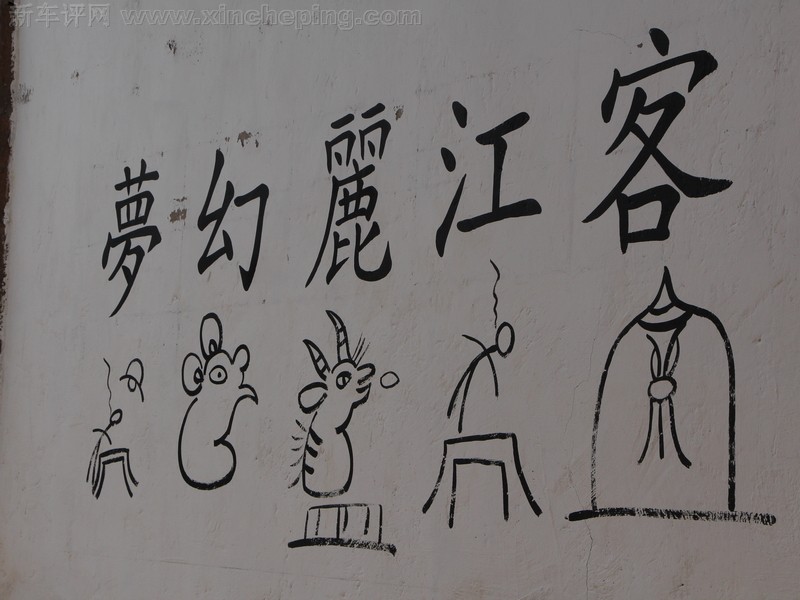 新车评网 www.xincheping.com
夢幻麗江客